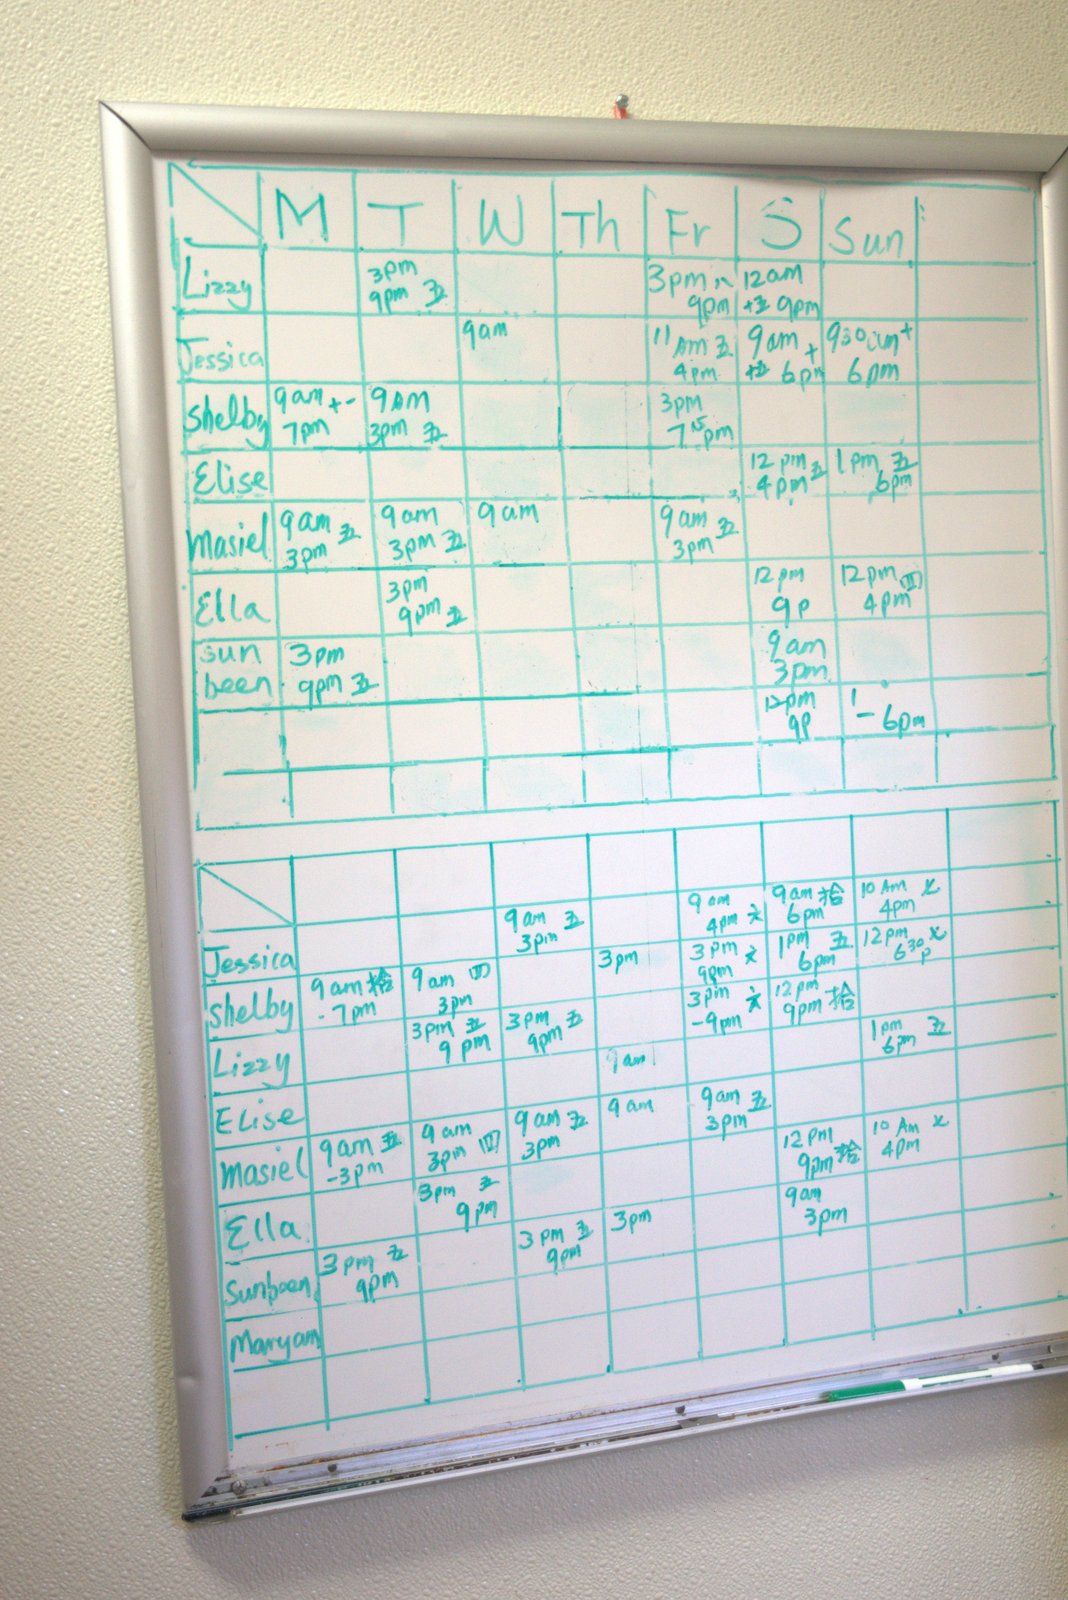 M T W Th Fr S Sun
Lizzy 3pm 9pm 五 3pm 9pm 12am 9pm
Jessica 9am 11 Am 五 4pm 9am + 6pm 930am + 6pm
Shelby 9am + - 7pm 9AM 3pm 五 3pm 7 15 pm
Elise 12 pm 4pm 五 1pm 五 6pm
Masiel 9am 五 3pm 9am 3pm 五 9am 9am 五 3pm
Ella 3pm 9pm 五 12 pm 9p 12pm 4pm
sun been 3pm 9pm 五 9am 3pm
12pm 9p 1 – 6pm
Jessica 9am 五 3pm 9am 4pm 六 9am 拾 6pm 10 Am 4pm
Shelby 9am 拾 - 7pm 9am 四 3pm 3pm 3pm 六 9pm 1pm 五 6pm 12pm 630p
Lizzy 3pm 五 9pm 3pm 9pm 五 3pm 六 -9pm 12pm 9pm 拾
Elise 9am 1pm 6pm 五
Masiel 9am 五 -3pm 9am 3pm 四 9am 五 3pm 9am 9am 五 3pm
Ella 3pm 五 9pm 12pm 9pm 拾 10 Am 4pm
Sunbeen 3pm 五 9pm 3pm 五 9pm 3pm 9am 3pm
Maryam